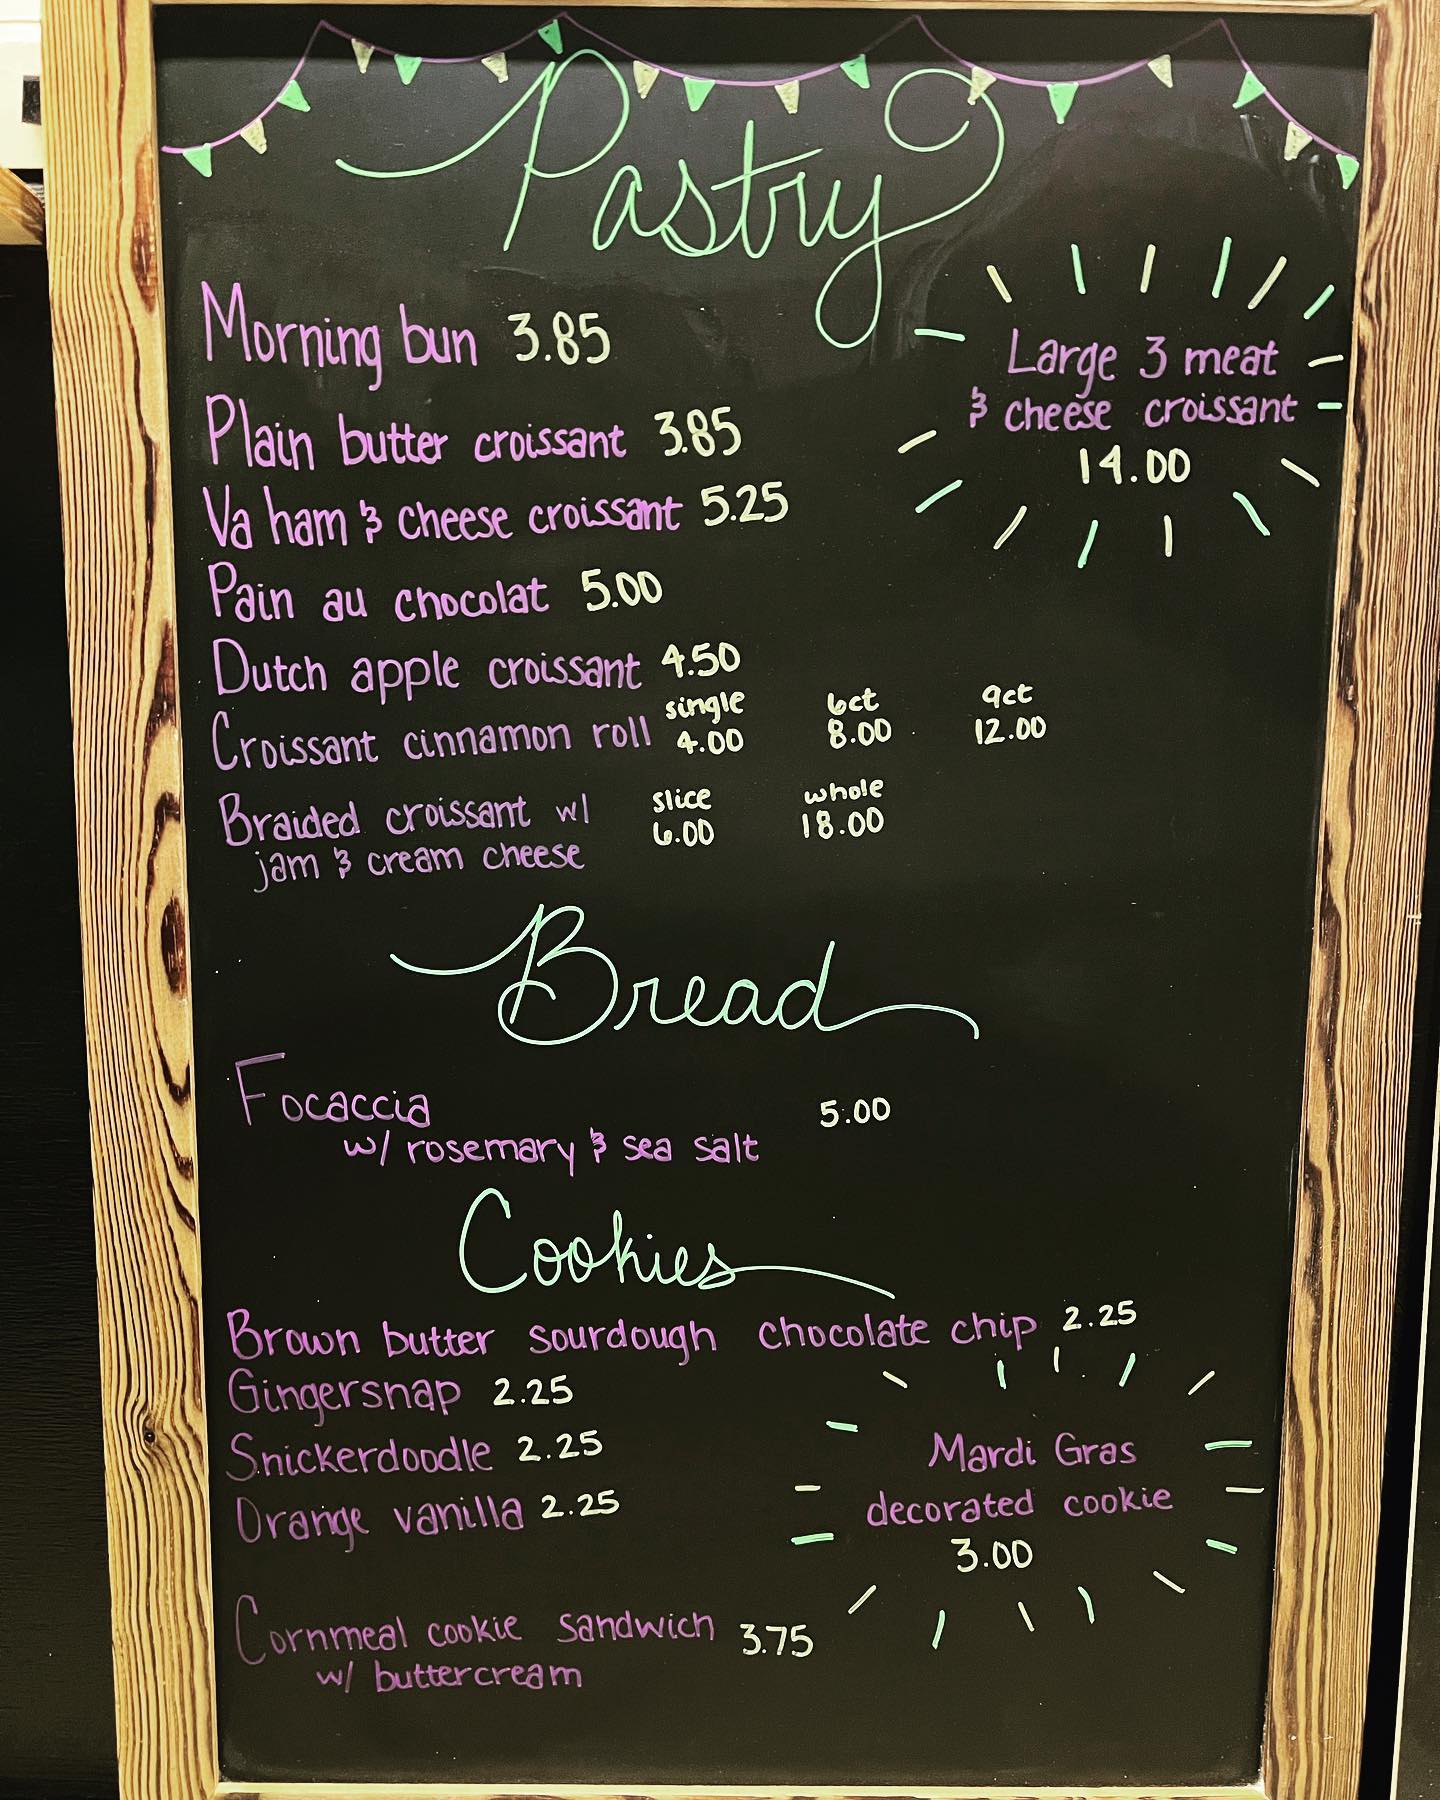 Pastry
Morning bun 3.85
Large 3 meat
& cheese croissant
14.00
Plain butter croissant 3.85
Va ham & cheese croissant 5.25
Pain au chocolat 5.00
Dutch apple croissant 4.50
single 6ct 9ct
Croissant cinnamon roll 4.00 8.00 12.00
slice whole
Braided croissant w/ 6.00 18.00
jam & cream cheese
Bread
Focaccia 5.00
w/ rosemary & sea salt
Cookies
Brown butter sourdough chocolate chip 2.25
Gingersnap 2.25
Snickerdoodle 2.25
Orange vanilla 2.25
Mardi Gras
decorated cookie
3.00
Cornmeal cookie sandwich 3.75
w/ buttercream